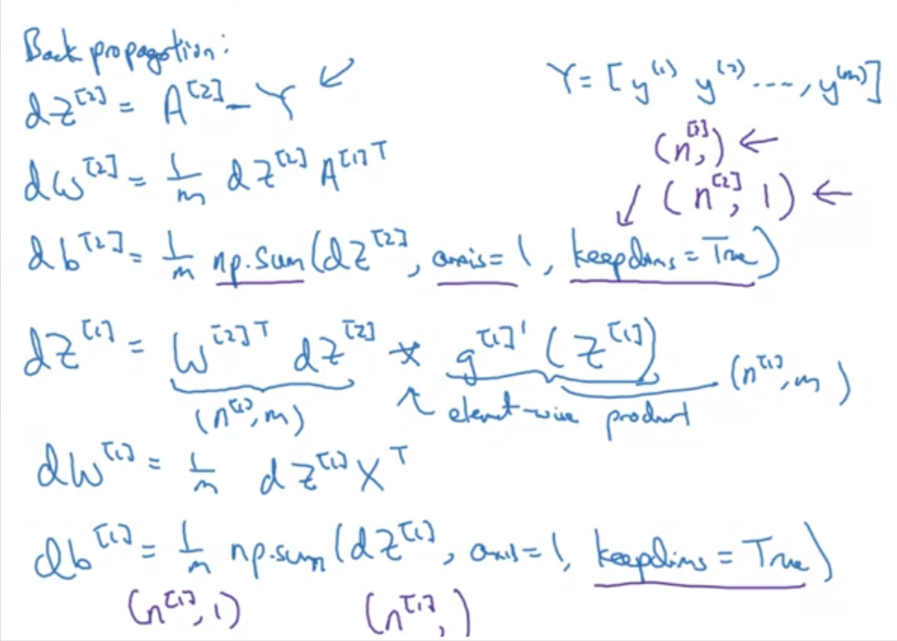 Back propagation:
dZ^[2] = A^[2] - Y ↙
Y = [y^(1) y^(2) ...., y^(m)]
dW^[2] = 1/m dZ^[2] A^[1]T
(n^[2],) ←
↙ (n^[2], 1) ←
db^[2] = 1/m np.sum(dZ^[2], axis=1, keepdims=True)
dZ^[1] = W^[2]T dZ^[2] * g^[1]'(Z^[1])
(n^[1], m) element-wise product (n^[1], m)
dW^[1] = 1/m dZ^[1] X^T
db^[1] = 1/m np.sum(dZ^[1], axis=1, keepdims=True)
(n^[1], 1) (n^[1],)